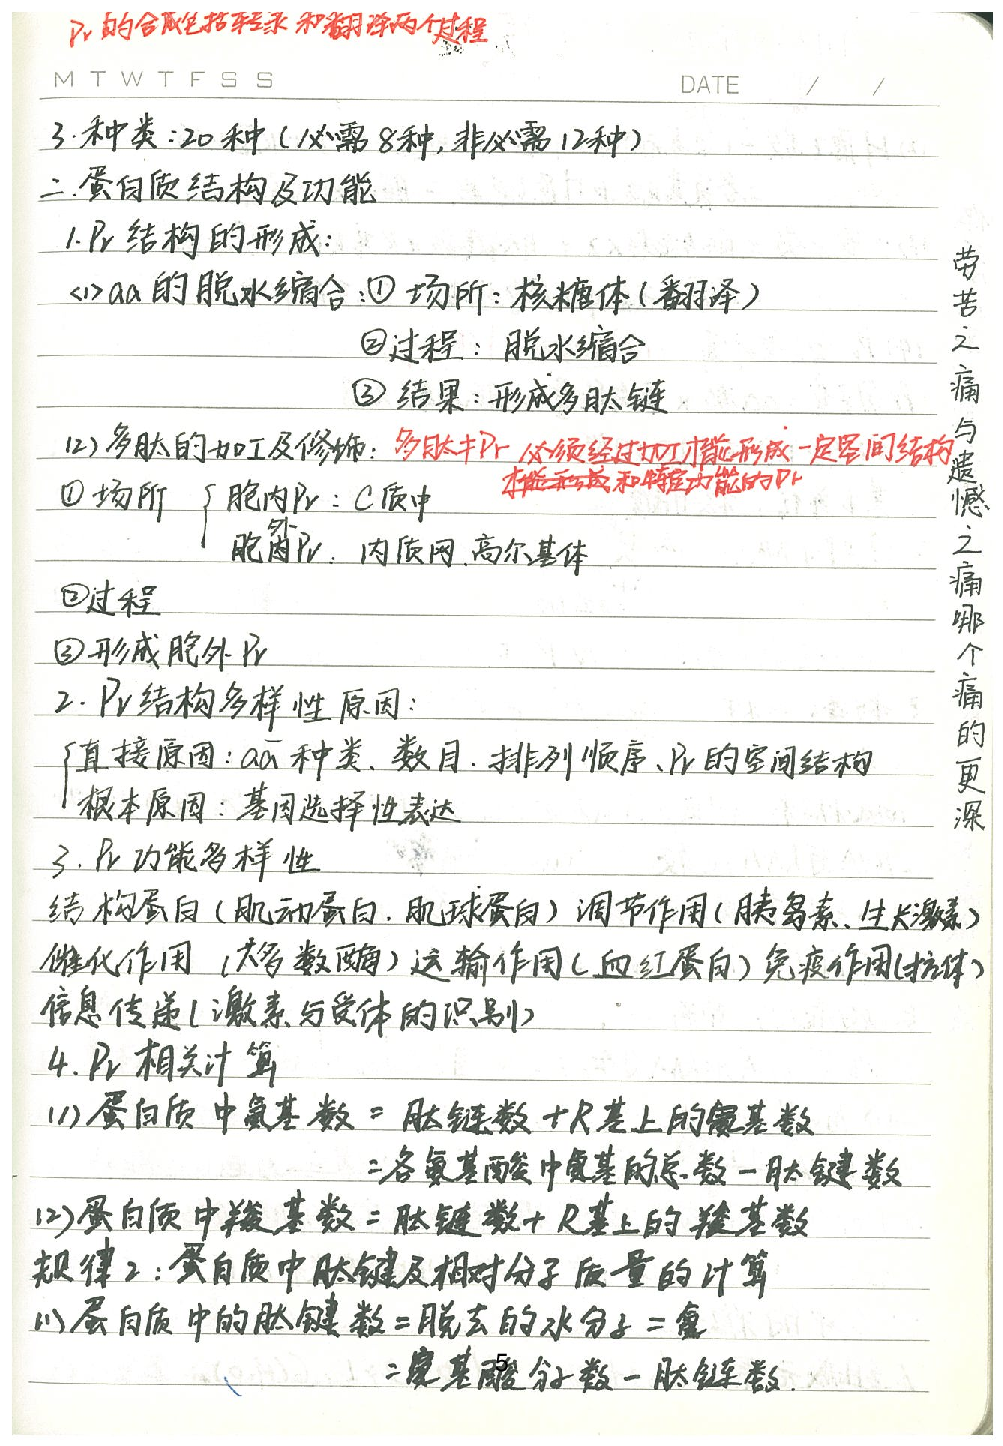 Pr的合成包括转录和翻译两个过程
M T W T F S S DATE / /
3.种类:20种(必需8种,非必需12种)
二.蛋白质结构及功能
1.Pr结构的形成:
<1>aa的脱水缩合:① 场所:核糖体(翻译)
②过程:脱水缩合
③ 结果:形成多肽链
(2)多肽的加工及修饰:多肽≠Pr 必须经过加工才能形成一定空间结构
才能形成和特定功能的Pr
① 场所 { 胞内Pr:C质中
胞外Pr:内质网.高尔基体
②过程
③形成胞外Pr
2.Pr结构多样性原因:
{直接原因:aa种类、数目.排列顺序、Pr的空间结构
根本原因:基因选择性表达
3.Pr功能多样性
结构蛋白(肌动蛋白.肌球蛋白)调节作用(胰岛素、生长激素)
催化作用(大多数酶)运输作用(血红蛋白)免疫作用(抗体)
信息传递(激素与受体的识别)
4.Pr相关计算
(1)蛋白质中氨基数=肽链数+R基上的氨基数
=各氨基酸中氨基的总数-肽键数
(2)蛋白质中羧基数=肽链数+R基上的羧基数
规律2:蛋白质中肽键及相对分子质量的计算
(1)蛋白质中的肽键数=脱去的水分子=氨
=氨基酸分子数-肽链数.
5
劳苦之痛与遗憾之痛哪个痛的更深